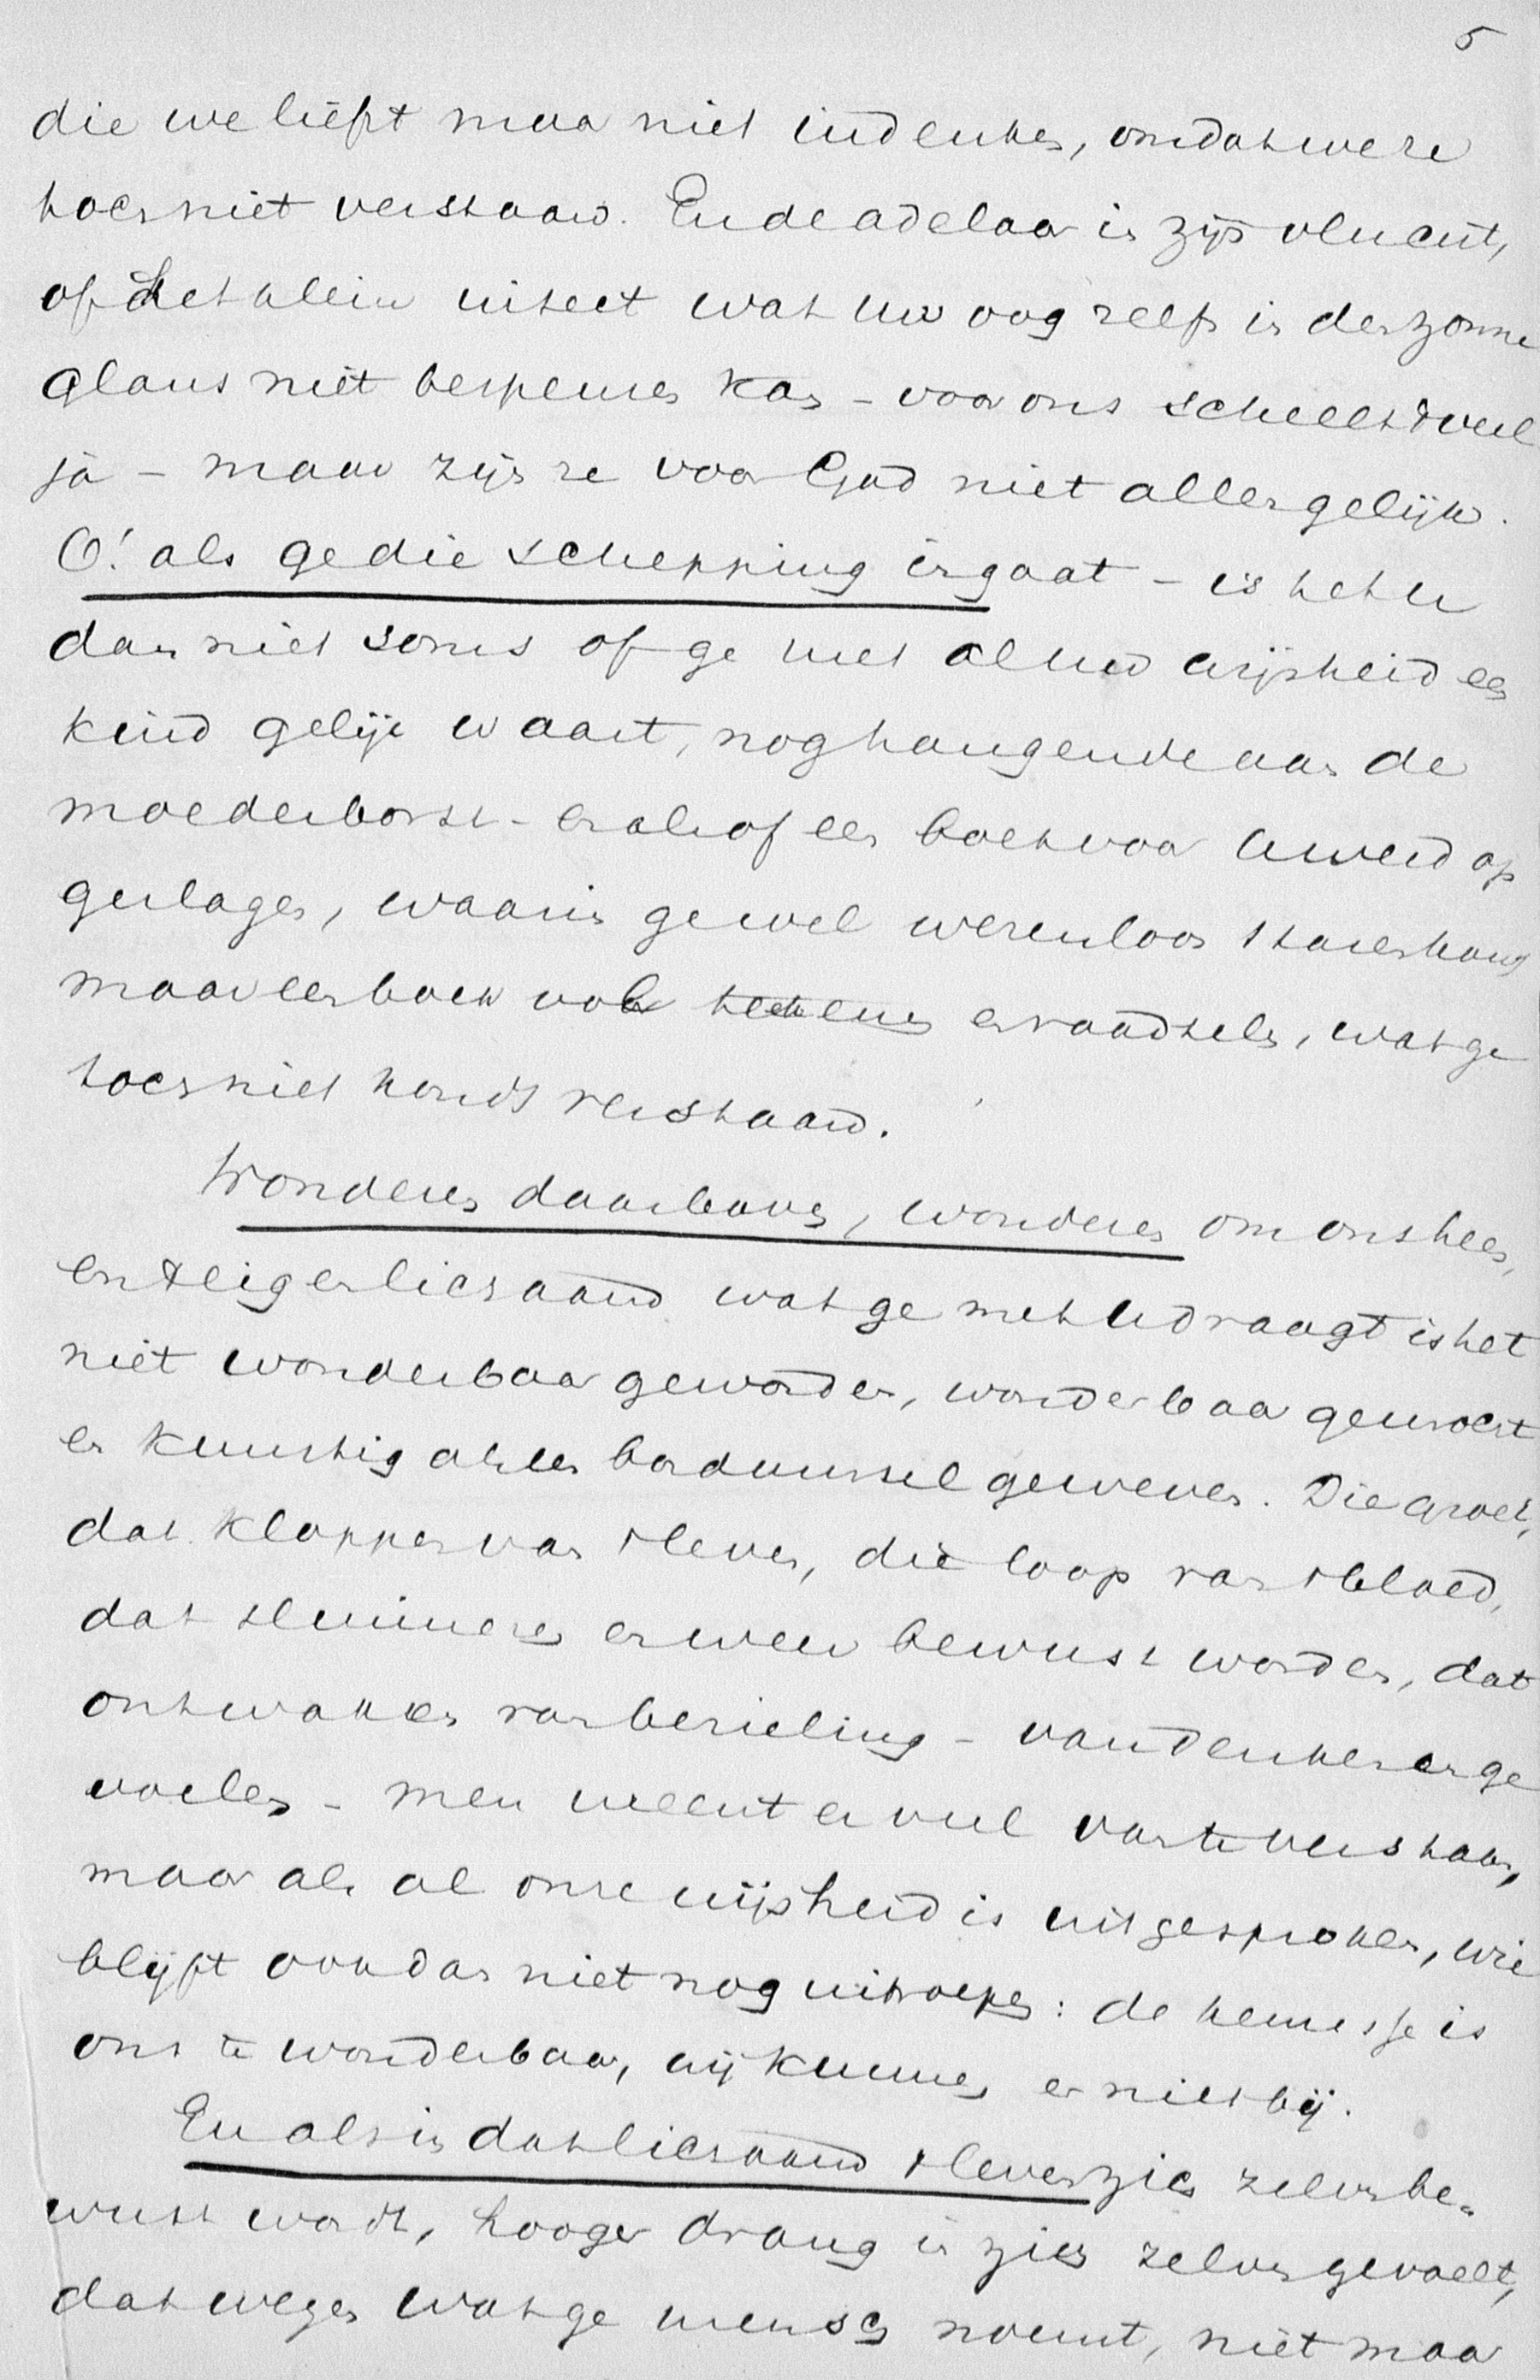 5
die we liefst maar niet indenken, omdat we ze
toch niet verstaan. En de adelaar in zijn vlucht,
of het klein insect wat uw oog zelfs in der zonne
glans niet bespeuren kan - voor ons scheelt 't veel
ja - maar zijn ze voor God niet allen gelijk.
O! als ge die schepping ingaat - is het u
dan niet soms of ge met al uw wijsheid een
kind gelijk waart, nog hangende aan de
moederborst - en alsof een boek voor u werd op
geslagen, waarin ge wel wezenloos staren kong
maar een boek vol teekens en raadsels, wat ge
toch niet kondt verstaan.
Wonderen daarboven, wonderen om ons heen,
en 't eigen lichaam wat ge met u draagt is het
niet wonderbaar geworden, wonderbaar gewrocht
en kunstig als een borduursel geweven. Die groei,
dat kloppen van 't leven, die loop van 't bloed,
dat sluimeren en weer bewust worden, dat
ontwakken van bezieling - van denken en ge
voelen - men meent er veel van te verstaan,
maar als al onze wijsheid is uitgesproken, wie
blijft ook dan niet nog uitroepen: de kennisse is
ons te wonderbaar, wij kunnen er niet bij.
En als in dat lichaam 't leven zich zelven be-
wust wordt, hooger drang in zich zelven gevoelt,
dat wezen wat ge mensch noemt, niet maar